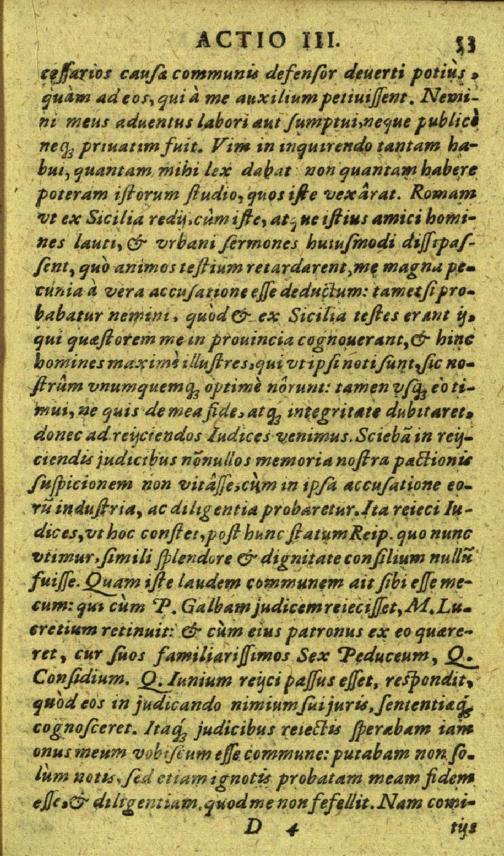 ACTIO III. 53
cessarios causa communis defensor deverti potiùs,
quàm ad eos, qui à me auxilium petivissent. Nemi-
ni meus adventus labori aut sumptui, neque publicè
neq; privatim fuit. Vim in inquirendo tantam ha-
bui, quantam mihi lex dabat non quantam habere
poteram istorum studio, quos iste vexârat. Romam
vt ex Sicilia redij, cùm iste, atque istius amici homi-
nes lauti, & vrbani sermones huiusmodi dissipas-
sent, quò animos testium retardarent, me magna pe-
cunia à vera accusatione esse deductum: tametsi pro-
babatur nemini, quòd & ex Sicilia testes erant ij,
qui quæstorem me in provincia cognouerant, & hinc
homines maximè illustres, qui vt ipsi noti sunt, sic no-
strûm vnumquemq; optimè nôrunt: tamen vsq; eò ti-
mui, ne quis de mea fide, atq; integritate dubitaret,
donec ad reijciendos Iudices venimus. Sciebã in reij-
ciendis judicibus nõnullos memoria nostra pactionis
suspicionem non vitâsse, cùm in ipsa accusatione eo-
rũ industria, ac diligentia probaretur. Ita reieci Iu-
dices, vt hoc constet, post hunc statum Reip. quo nunc
vtimur, simili splendore & dignitate consilium nullũ
fuisse. Quam iste laudem communem ait sibi esse me-
cum: qui cùm P. Galbam judicem reiecisset, M. Lu-
cretium retinuit: & cùm eius patronus ex eo quære-
ret, cur suos familiarissimos Sex Peduceum, Q.
Considium. Q. Iunium reijci passus esset, respondit,
quòd eos in judicando nimium sui juris, sententiæq;
cognosceret. Itaq; judicibus reiectis sperabam iam
onus meum vobiscum esse commune: putabam non so-
lùm notis, sed etiam ignotis probatam meam fidem
esse, & diligentiam, quod me non fefellit. Nam comi-
D 4 tijs